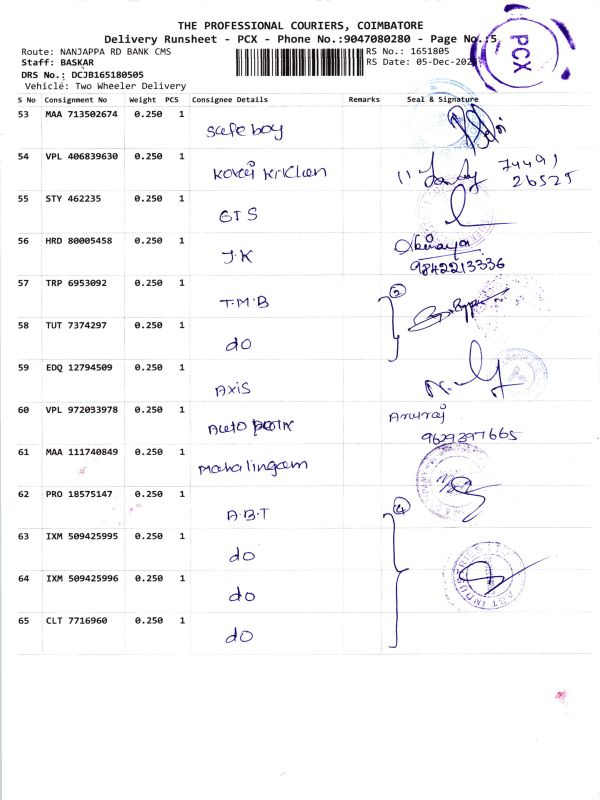 THE PROFESSIONAL COURIERS, COIMBATORE
Delivery Runsheet - PCX - Phone No.:9047080280 - Page No.:5
Route: NANJAPPA RD BANK CMS
RS No.: 1651805
Staff: BASKAR
RS Date: 05-Dec-202
DRS No.: DCJB165180505
Vehicle: Two Wheeler Delivery
PCX
S No Consignment No Weight PCS Consignee Details Remarks Seal & Signature
53 MAA 713502674 0.250 1
safe boy
54 VPL 406839630 0.250 1
kovai kitchen
74491
26525
55 STY 462235 0.250 1
GTS
56 HRD 80005458 0.250 1
J.K
Abinaya
9842213336
57 TRP 6953092 0.250 1
T.M.B
2
58 TUT 7374297 0.250 1
do
59 EDQ 12794509 0.250 1
AXIS
60 VPL 972033978 0.250 1
Auto
Arulraj
9629397665
61 MAA 111740849 0.250 1
Mahalingam
62 PRO 18575147 0.250 1
A.B.T
4
63 IXM 509425995 0.250 1
do
64 IXM 509425996 0.250 1
do
65 CLT 7716960 0.250 1
do